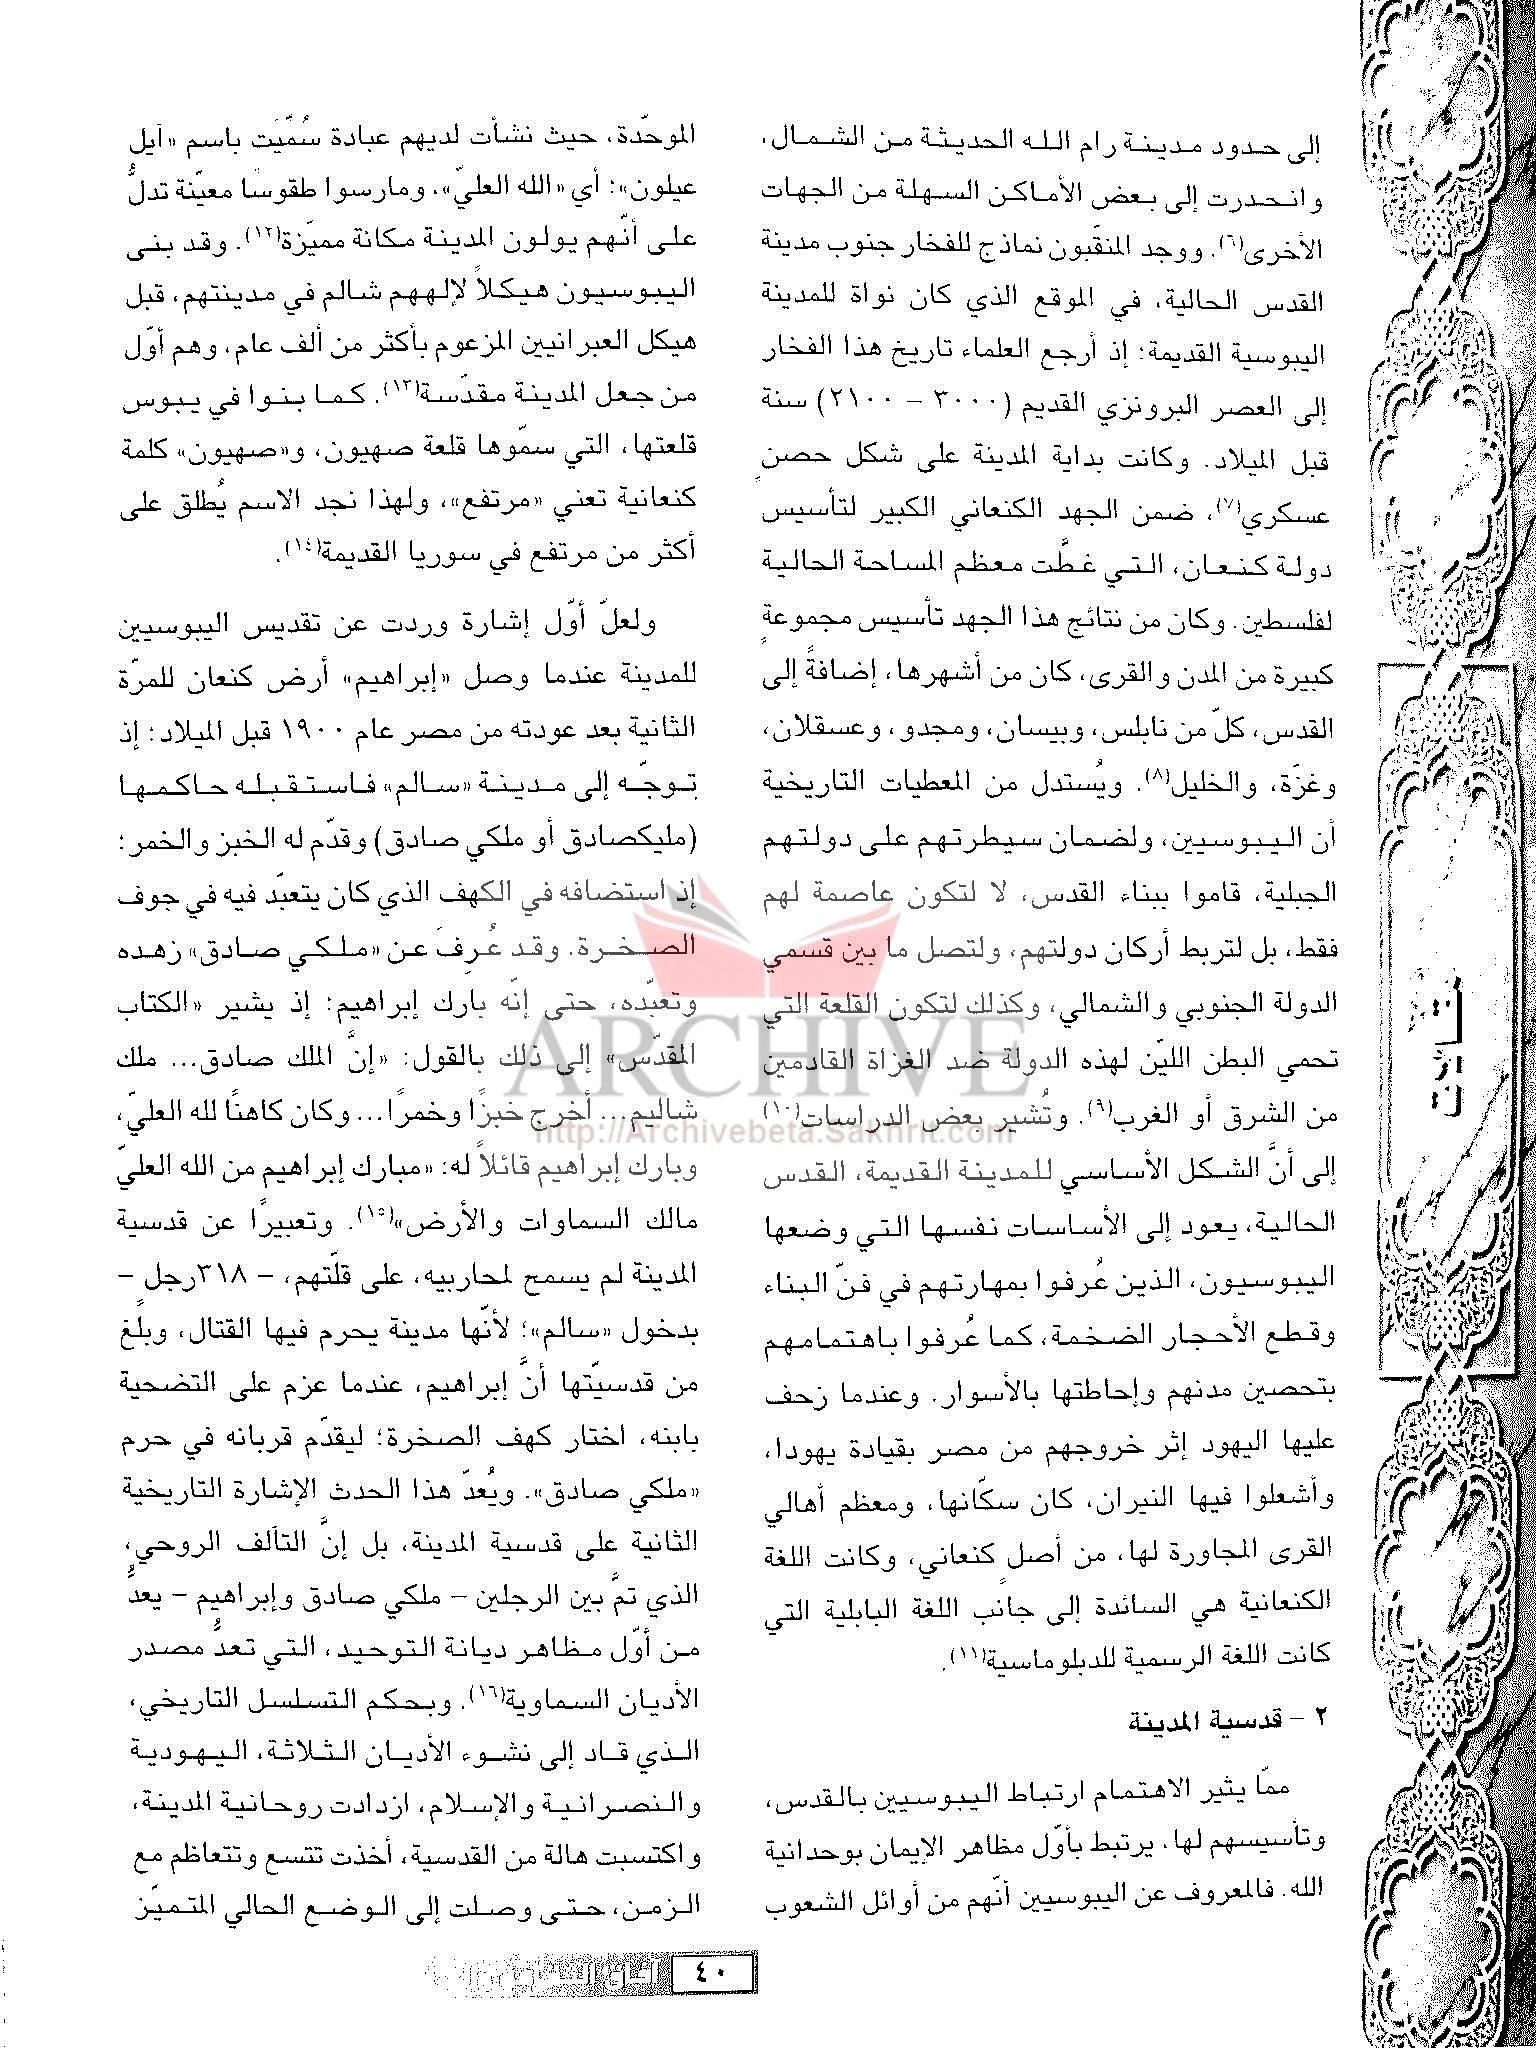 إلى حدود مدينة رام الله الحديثة من الشمال،
وانحدرت إلى بعض الأماكن السهلة من الجهات
الأخرى(٦). ووجد المنقّبون نماذج للفخار جنوب مدينة
القدس الحالية، في الموقع الذي كان نواة للمدينة
اليبوسية القديمة؛ إذ أرجع العلماء تاريخ هذا الفخار
إلى العصر البرونزي القديم (٣٠٠٠ – ٢١٠٠) سنة
قبل الميلاد. وكانت بداية المدينة على شكل حصنٍ
عسكري(٧)، ضمن الجهد الكنعاني الكبير لتأسيس
دولة كنعان، التي غطَّت معظم المساحة الحالية
لفلسطين. وكان من نتائج هذا الجهد تأسيس مجموعةٍ
كبيرة من المدن والقرى، كان من أشهرها، إضافةً إلى
القدس، كلّ من نابلس، وبيسان، ومجدو، وعسقلان،
وغزّة، والخليل(٨). ويُستدل من المعطيات التاريخية
أن اليبوسيين، ولضمان سيطرتهم على دولتهم
الجبلية، قاموا ببناء القدس، لا لتكون عاصمة لهم
فقط، بل لتربط أركان دولتهم، ولتصل ما بين قسمي
الدولة الجنوبي والشمالي، وكذلك لتكون القلعة التي
تحمي البطن الليّن لهذه الدولة ضد الغزاة القادمين
من الشرق أو الغرب(٩). وتُشير بعض الدراسات(١٠)
إلى أنَّ الشكل الأساسي للمدينة القديمة، القدس
الحالية، يعود إلى الأساسات نفسها التي وضعها
اليبوسيون، الذين عُرفوا بمهارتهم في فنّ البناء
وقطع الأحجار الضخمة، كما عُرفوا باهتمامهم
بتحصين مدنهم وإحاطتها بالأسوار. وعندما زحف
عليها اليهود إثر خروجهم من مصر بقيادة يهودا،
وأشعلوا فيها النيران، كان سكّانها، ومعظم أهالي
القرى المجاورة لها، من أصلٍ كنعاني، وكانت اللغة
الكنعانية هي السائدة إلى جانب اللغة البابلية التي
كانت اللغة الرسمية للدبلوماسية(١١).
٢ – قدسية المدينة
ممّا يثير الاهتمام ارتباط اليبوسيين بالقدس،
وتأسيسهم لها، يرتبط بأوّل مظاهر الإيمان بوحدانية
الله. فالمعروف عن اليبوسيين أنّهم من أوائل الشعوب
الموحّدة، حيث نشأت لديهم عبادة سُمّيَت باسم «آيل
عيلون»: أي «الله العليّ»، ومارسوا طقوسًا معيّنة تدلُّ
على أنّهم يولون المدينة مكانة مميّزة(١٢). وقد بنى
اليبوسيون هيكلاً لإلههم شالم في مدينتهم، قبل
هيكل العبرانيين المزعوم بأكثر من ألف عام، وهم أوّل
من جعل المدينة مقدّسة(١٣). كما بنوا في يبوس
قلعتها، التي سمّوها قلعة صهيون، و«صهيون» كلمة
كنعانية تعني «مرتفع»، ولهذا نجد الاسم يُطلق على
أكثر من مرتفع في سوريا القديمة(١٤).
ولعلّ أوّل إشارة وردت عن تقديس اليبوسيين
للمدينة عندما وصل «إبراهيم» أرض كنعان للمرّة
الثانية بعد عودته من مصر عام ١٩٠٠ قبل الميلاد؛ إذ
توجّه إلى مدينة «سالم» فاستقبله حاكمها
(مليكصادق أو ملكي صادق) وقدّم له الخبز والخمر؛
إذ استضافه في الكهف الذي كان يتعبّد فيه في جوف
الصخرة. وقد عُرِفَ عن «ملكي صادق» زهده
وتعبّده، حتى إنّه بارك إبراهيم؛ إذ يشير «الكتاب
المقدّس» إلى ذلك بالقول: «إنَّ الملك صادق... ملك
شاليم... أخرج خبزًا وخمرًا... وكان كاهنًا لله العليّ،
وبارك إبراهيم قائلاً له: «مبارك إبراهيم من الله العليّ
مالك السماوات والأرض»(١٥). وتعبيرًا عن قدسية
المدينة لم يسمح لمحاربيه، على قلّتهم، – ٣١٨رجل –
بدخول «سالم»؛ لأنّها مدينة يحرم فيها القتال، وبلغ
من قدسيّتها أنَّ إبراهيم، عندما عزم على التضحية
بابنه، اختار كهف الصخرة؛ ليقدّم قربانه في حرم
«ملكي صادق». ويُعدّ هذا الحدث الإشارة التاريخية
الثانية على قدسية المدينة، بل إنَّ التآلف الروحي،
الذي تمّ بين الرجلين – ملكي صادق وإبراهيم – يعدُّ
من أوّل مظاهر ديانة التوحيد، التي تعدُّ مصدر
الأديان السماوية(١٦). وبحكم التسلسل التاريخي،
الذي قاد إلى نشوء الأديان الثلاثة، اليهودية
والنصرانية والإسلام، ازدادت روحانية المدينة،
واكتسبت هالة من القدسية، أخذت تتسع وتتعاظم مع
الزمن، حتى وصلت إلى الوضع الحالي المتميّز
ARCHIVE
http://Archivebeta.Sakhrit.com
٤٠